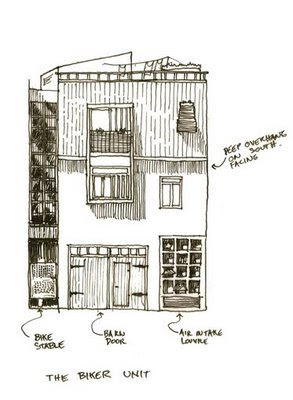 DEEP OVERHANG
ON SOUTH
FACING
BIKE
STABLE
BARN
DOOR
AIR INTAKE
LOUVRE
THE BIKER UNIT